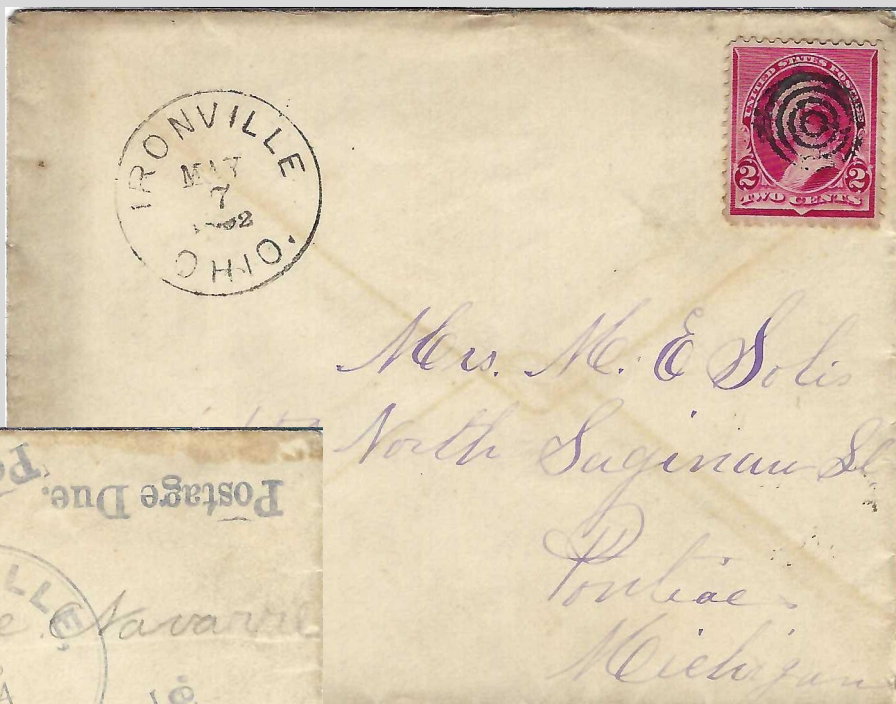 IRONVILLE
MAY
7
OHIO.
UNITED STATES POSTAGE
2 2
TWO CENTS
Mrs. M. E Solis
North Saginaw St
Pontiac
Michigan
Postage Due.
LLE,
Navarre